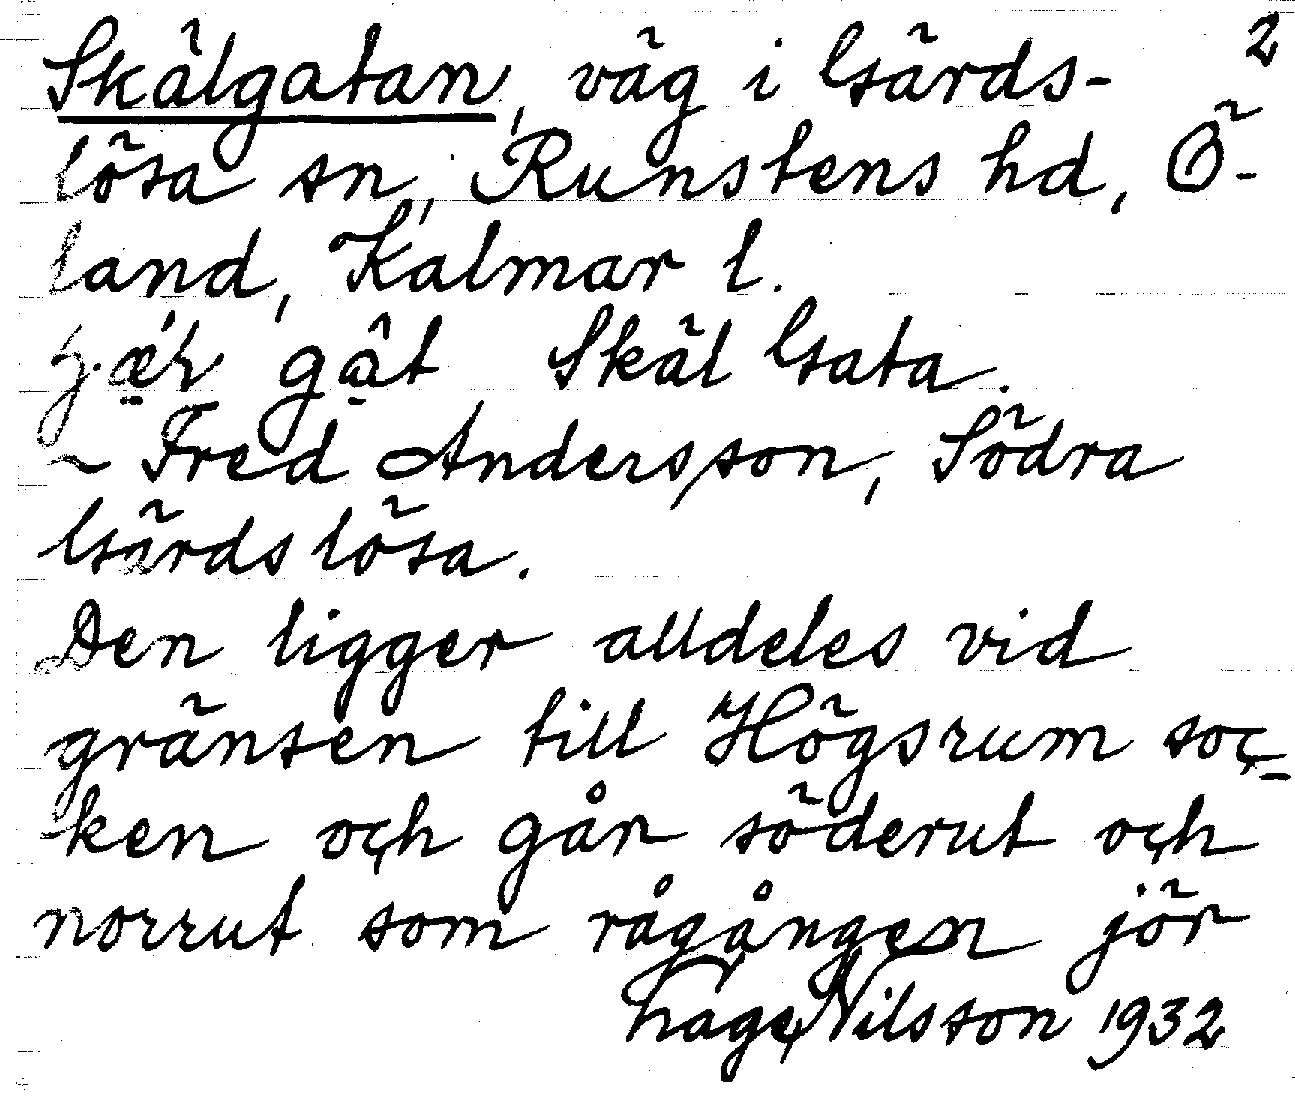 2
Skälgatan, väg i Gärds-
lösa sn, Runstens hd, Ö-
land, Kalmar l.
gat Skäl Gata.
~ Fred Andersson, Södra
Gärdslösa.
Den ligger alldeles vid
gränsen till Högsrum soc-
ken och går söderut och
norrut som rågången jör
Hage Nilsson 1932